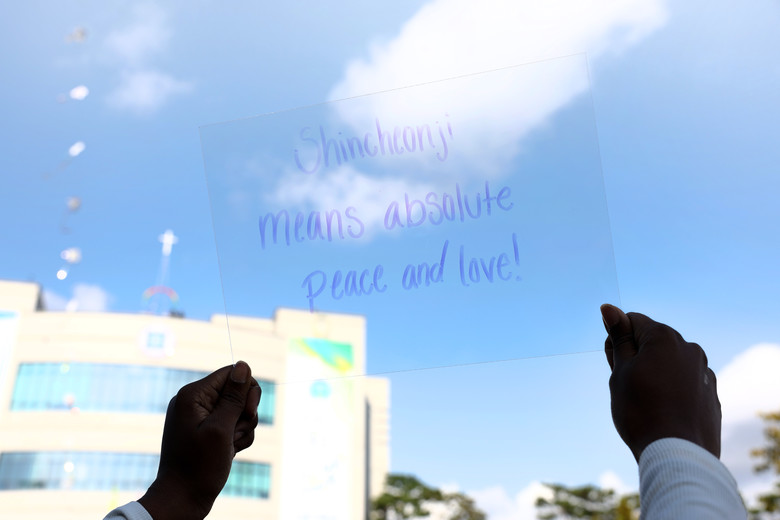 Shincheonji
means absolute
peace and love!